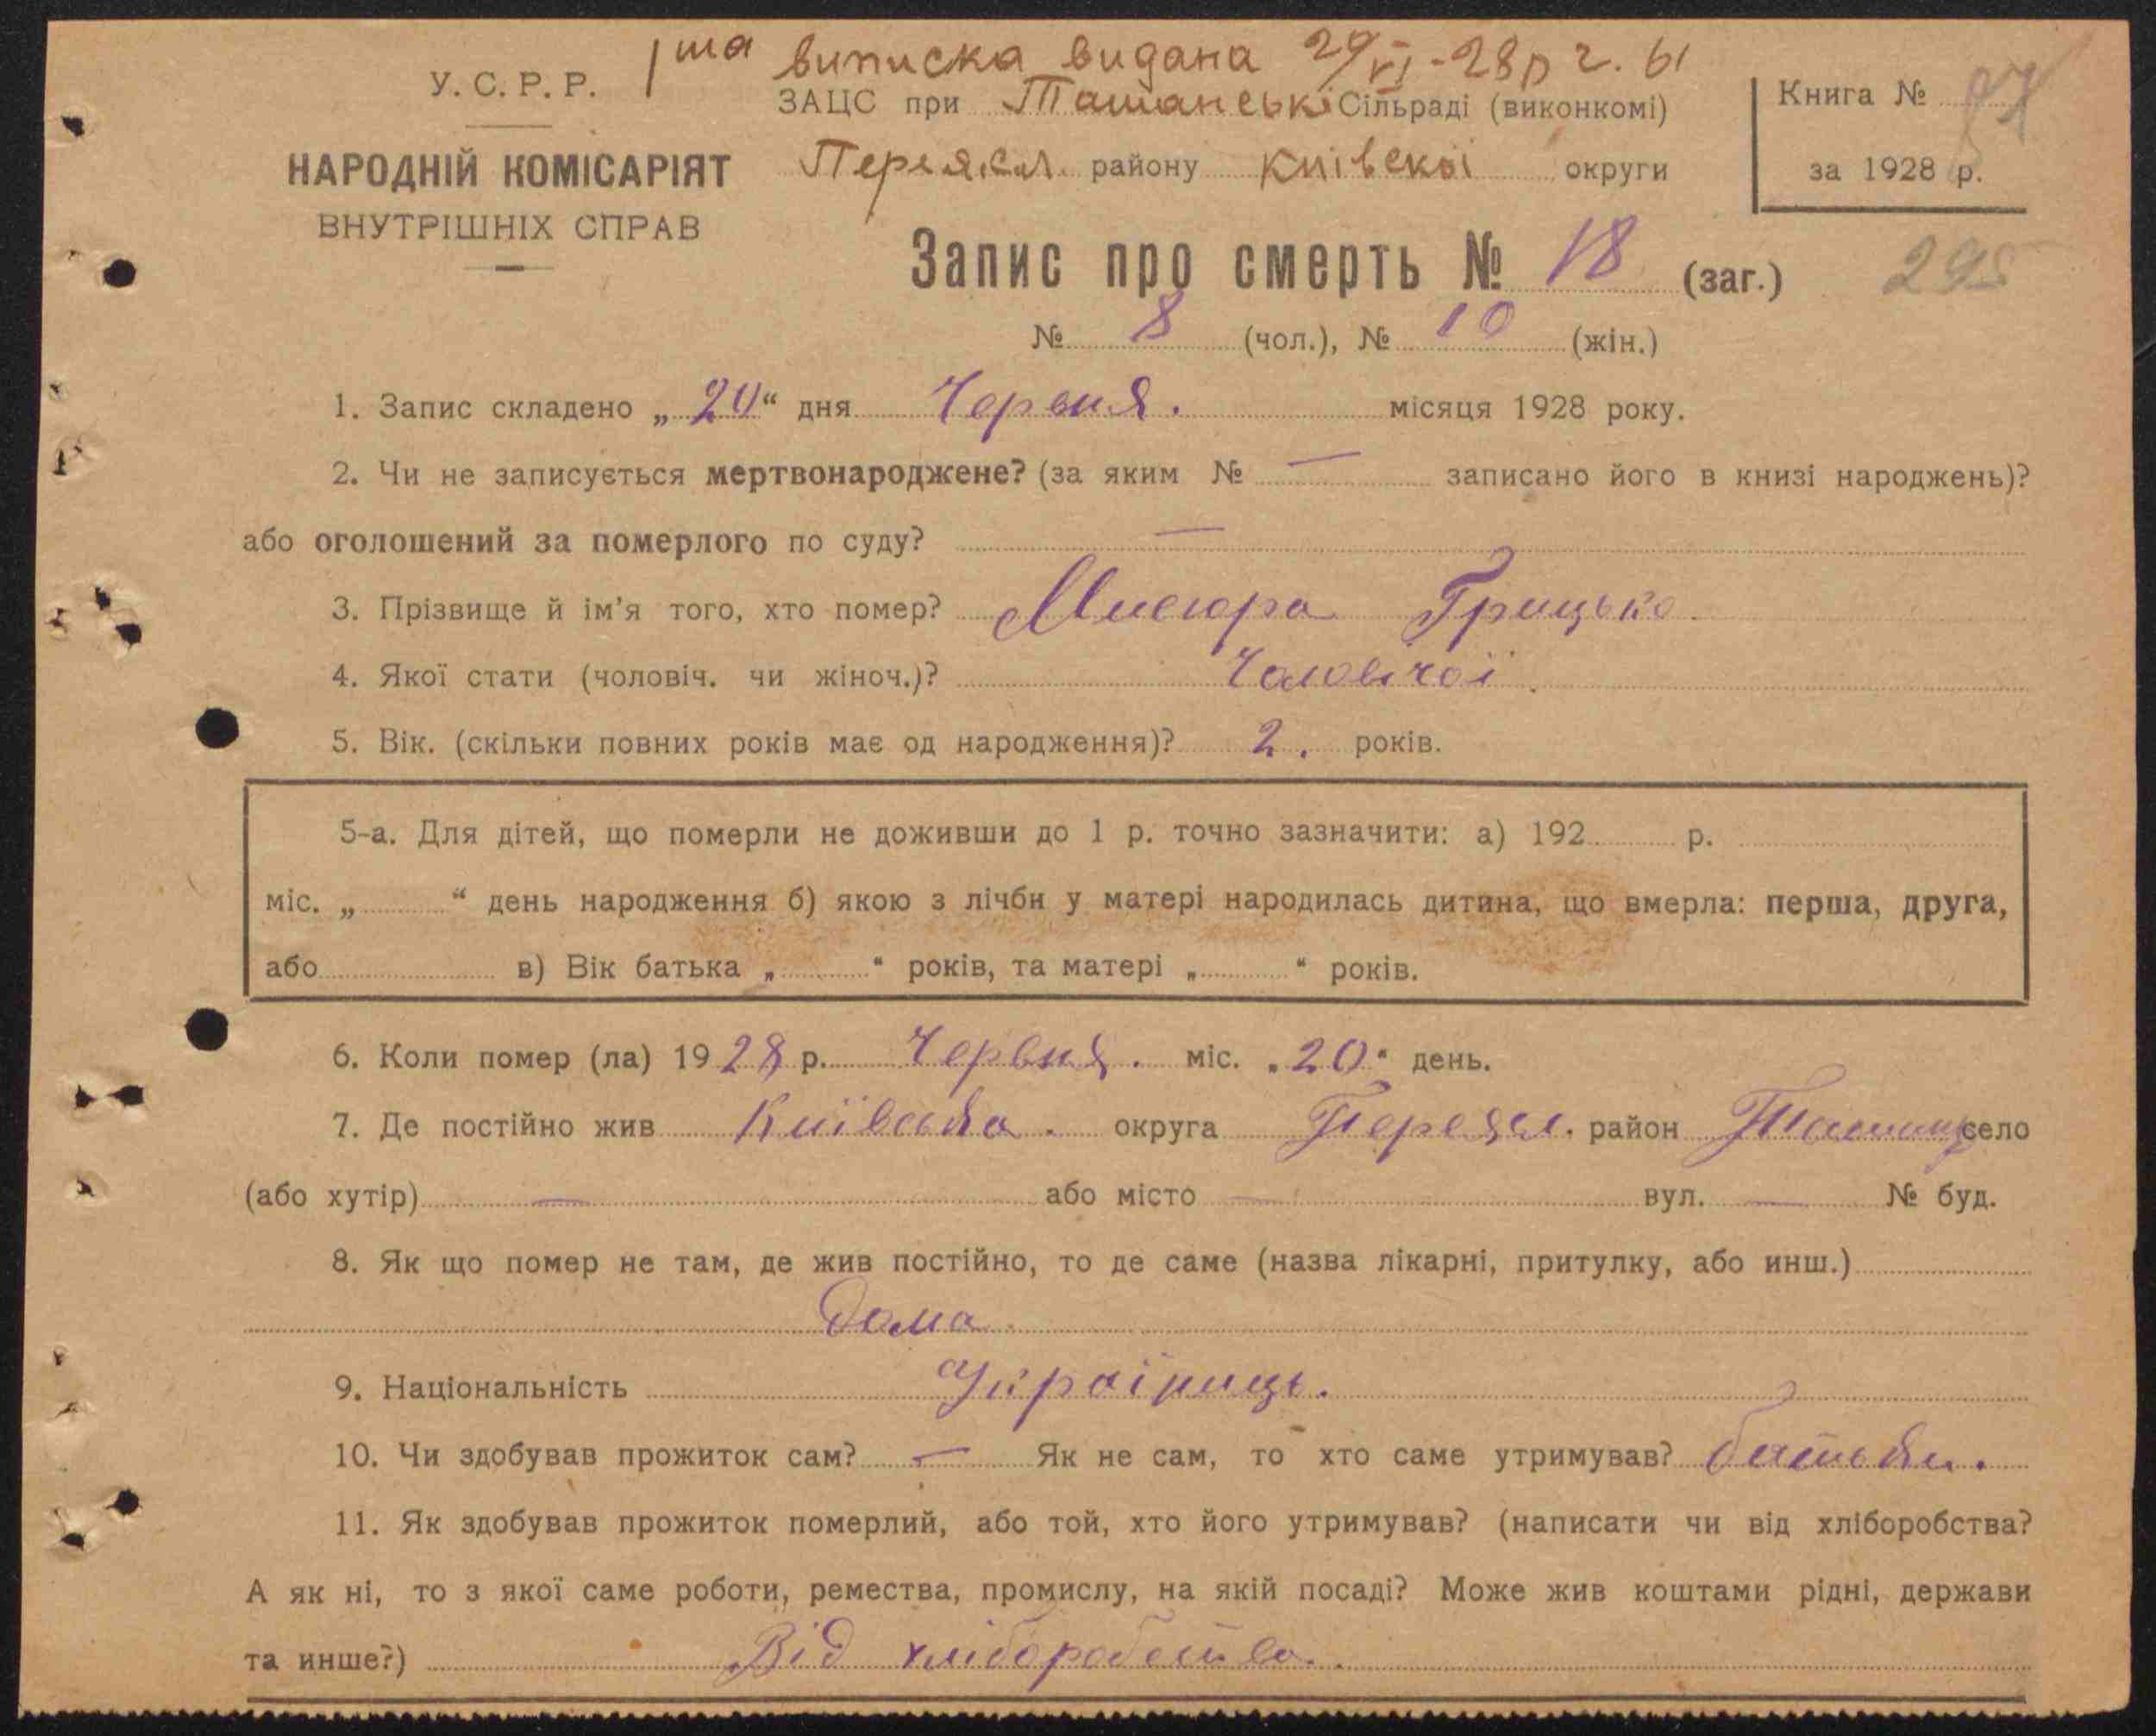 1ша виписка видана 29/VI-28р ч. 61
У. С. Р. Р.
ЗАЦС при Ташанські Сільраді (виконкомі)
Книга №
НАРОДНІЙ КОМІСАРІЯТ
Переясл. району Київскої округи
за 1928 р.
ВНУТРІШНІХ СПРАВ
Запис про смерть № 18 (заг.)
295
№ 8 (чол.), № 10 (жін.)
1. Запис складено „20“ дня Червня. місяця 1928 року.
2. Чи не записується мертвонароджене? (за яким № — записано його в книзі народжень)?
або оголошений за померлого по суду? —
3. Прізвище й ім'я того, хто помер? Мисюра Грицько
4. Якої стати (чоловіч. чи жіноч.)? Чоловічої
5. Вік. (скільки повних років має од народження)? 2. років.
5-а. Для дітей, що померли не доживши до 1 р. точно зазначити: а) 192 р.
міс. „ “ день народження б) якою з лічби у матері народилась дитина, що вмерла: перша, друга,
або в) Вік батька „ “ років, та матері „ “ років.
6. Коли помер (ла) 1928 р. Червня. міс. „20“ день.
7. Де постійно жив Київська. округа Переясл. район Ташань село
(або хутір) — або місто — вул. — № буд.
8. Як що помер не там, де жив постійно, то де саме (назва лікарні, притулку, або инш.)
дома.
9. Національність Україниць.
10. Чи здобував прожиток сам? — Як не сам, то хто саме утримував? батьки.
11. Як здобував прожиток померлий, або той, хто його утримував? (написати чи від хліборобства?
А як ні, то з якої саме роботи, ремества, промислу, на якій посаді? Може жив коштами рідні, держави
та инше?) Від хліборобства.